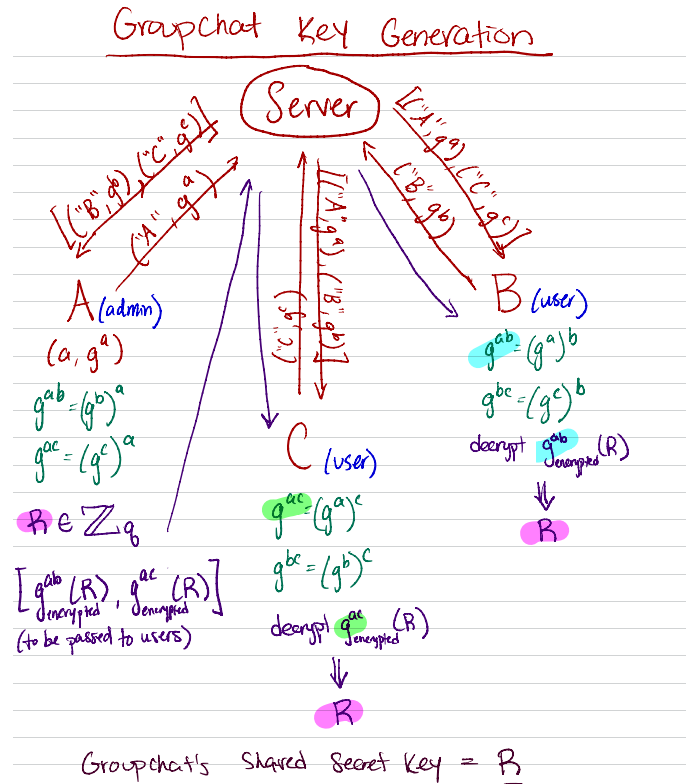 Groupchat Key Generation
Server
[("B", g^b), ("C", g^c)]
("A", g^a)
[("A", g^a), ("B", g^b)]
("C", g^c)
("B", g^b)
[("A", g^a), ("C", g^c)]
A (admin)
(a, g^a)
g^ab = (g^b)^a
g^ac = (g^c)^a
R ∈ ℤ_q
[g^ab_encrypted (R), g^ac_encrypted (R)]
(to be passed to users)
C (user)
g^ac = (g^a)^c
g^bc = (g^b)^c
decrypt g^ac_encrypted (R)
⇓
R
B (user)
g^ab = (g^a)^b
g^bc = (g^c)^b
decrypt g^ab_encrypted (R)
⇓
R
Groupchat's Shared Secret Key = R